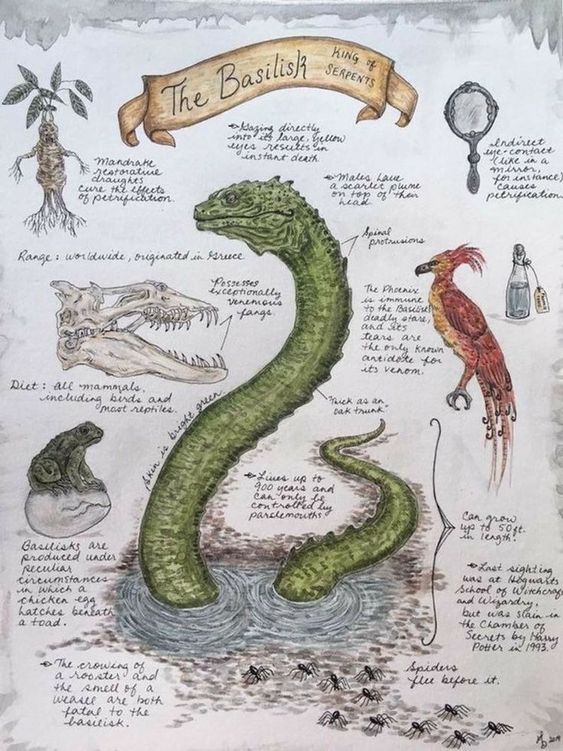 The Basilisk
KING of
SERPENTS
Gazing directly
into its large, yellow
eyes results in
instant death.
Indirect
eye-contact
(like in a
mirror,
for instance)
causes
petrification.
Mandrake
restorative
draughts
cure the effects
of petrification.
Males have
a scarlet plume
on top of their
head
Spinal
protrusions
Range: worldwide, originated in Greece
Possesses
exceptionally
venemous
fangs.
The Phoenix
is immune
to the Basilisk's
deadly stare,
and its
tears are
the only known
antidote for
its venom.
Diet: all mammals,
including birds and
most reptiles.
Skin is bright green
"Thick as an
oak trunk"
Lives up to
900 years and
can only be
controlled by
parselmouths
Can grow
up to 50ft.
in length!
Basilisks are
produced under
peculiar
circumstances
in which a
chicken egg
hatches beneath
a toad.
Last sighting
was at Hogwarts
School of Witchcraft
and Wizardry,
but was slain in
the Chamber of
Secrets by Harry
Potter in 1993.
The crowing of
a rooster and
the smell of a
weasel are both
fatal to the
basilisk.
Spiders
flee before it.
2019